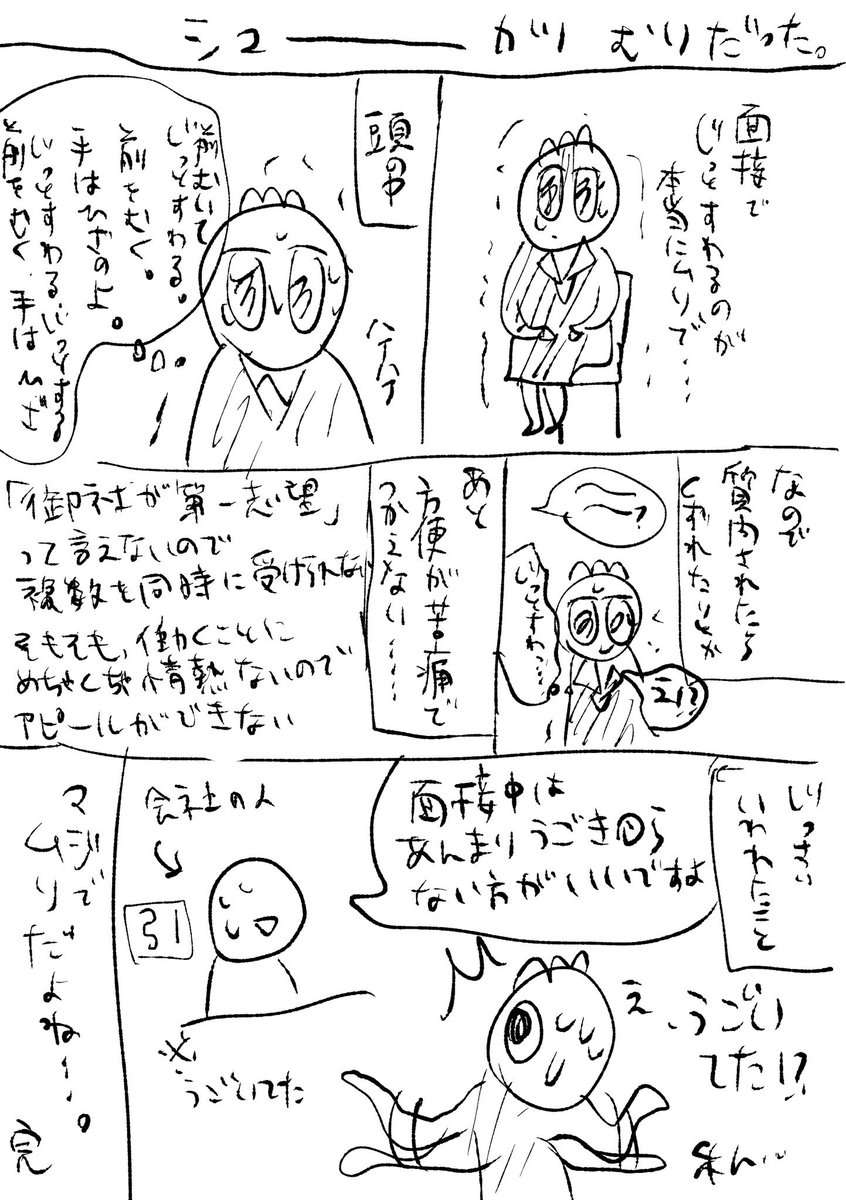 シューーーーカツ むりだった。
面接で
じっとすわるのが
本当にムリで…
頭の中
前むいて
じっとすわる。
前をむく。
手はひざのよ。
じっとすわる、じっとする
前をむく、手はひざ
と
ハァハァ
なので
質問されたら
くずれたりとか
〜〜?
じっとすわっ…
え!?
あと
方便が苦痛で
つかえない……
「御社が第一志望」
って言えないので
複数を同時に受けられない
そもそも、働くことに
めちゃくちゃ情熱ないので
アピールができない
じっさい
いわれたこと
面接中は
あんまりうごき回ら
ない方がいいですよ
会社の人
引
え、
うごい
てた!?
※
うごいてた
マジで
ムリだよね〜。
完